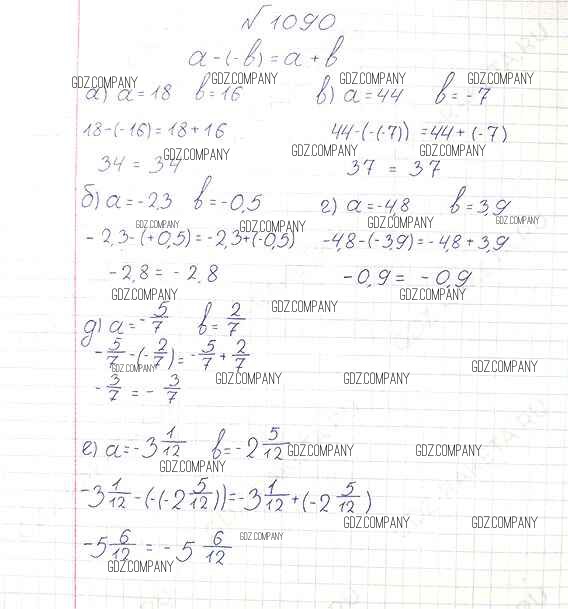 №1090
a-(-b)=a+b
GDZ.COMPANY GDZ.COMPANY GDZ.COMPANY GDZ.COMPANY
а) a=18 b=16 в) a=44 b=-7
18-(-16)=18+16 44-(-(-7))=44+(-7)
GDZ.COMPANY GDZ.COMPANY GDZ.COMPANY
34=34 37=37
б) a=-2,3 b=-0,5 г) a=-4,8 b=3,9
GDZ.COMPANY GDZ.COMPANY GDZ.COMPANY GDZ.COMPANY
-2,3-(+0,5)=-2,3+(-0,5) -4,8-(-3,9)=-4,8+3,9
-2,8=-2,8 -0,9=-0,9
GDZ.COMPANY GDZ.COMPANY
GDZ.COMPANY
д) a=-5/7 b=2/7
-5/7-(-2/7)=-5/7+2/7
GDZ.COMPANY GDZ.COMPANY
GDZ.COMPANY GDZ.COMPANY
-3/7=-3/7
е) a=-3 1/12 b=-2 5/12
GDZ.COMPANY GDZ.COMPANY
GDZ.COMPANY
-3 1/12-(-(-2 5/12))=-3 1/12+(-2 5/12)
GDZ.COMPANY GDZ.COMPANY
-5 6/12=-5 6/12
GDZ.COMPANY
GDZ.COMPANY